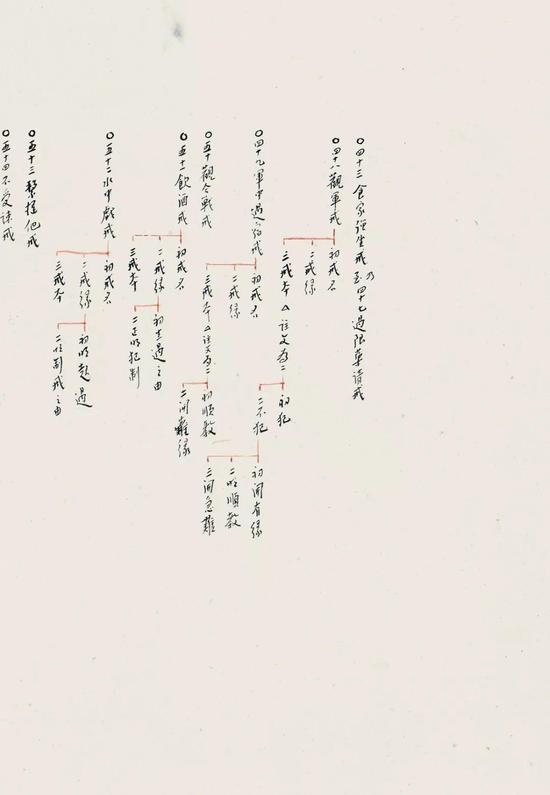 ○四十三食家強坐戒乃至四十七過限藥請戒
○四十八觀軍戒
初戒名
二戒緣
三戒本△註文為二
初犯
二不犯
初開有緣
二明順教
三開急難
○四十九軍中過宿戒
初戒名
二戒緣
三戒本△註文為二
初順教
二開難緣
○五十觀合戰戒
○五十一飲酒戒
初戒名
二戒緣
初生過之由
二正明犯制
三戒本
○五十二水中戲戒
初戒名
二戒緣
初明起過
二佛制戒之由
三戒本
○五十三擊攊他戒
○五十四不受諫戒